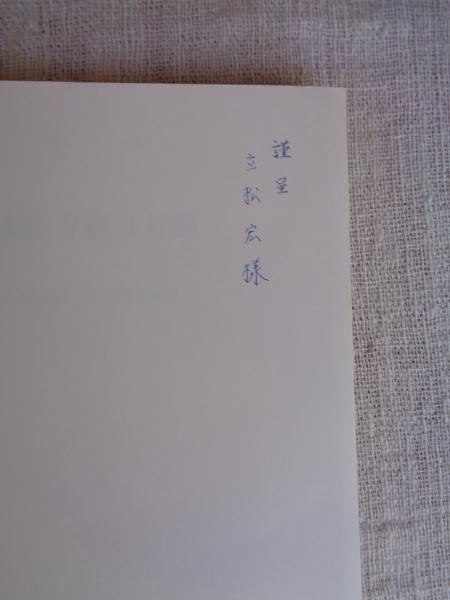 謹呈
立松宏様